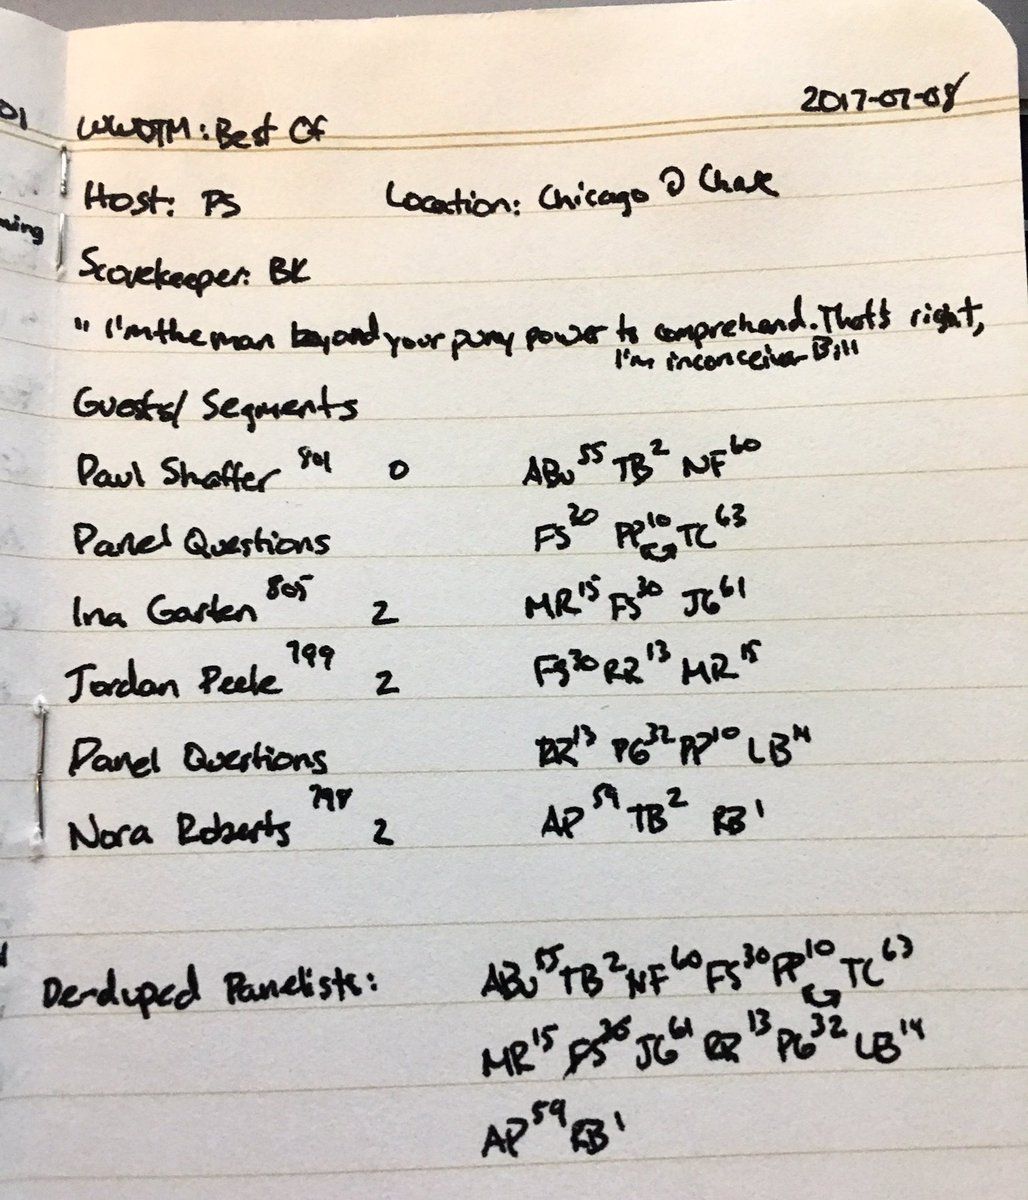 01
2017-07-08
WWDTM: Best Of
Host: PS Location: Chicago @ Chase
ning
Scorekeeper: BK
"I'm the man beyond your puny power to comprehend. That's right,
I'm inconceiva-Bill
Guests/Segments
Paul Shaffer 801 0 ABu 55 TB 2 NF 60
Panel Questions FS 30 PP 10 TC 63
Ina Garten 805 2 MR 15 FS 30 JG 61
Jordan Peele 799 2 FS 30 RR 13 MR 15
Panel Questions RR 13 PG 32 PP 10 LB 14
Nora Roberts 798 2 AP 59 TB 2 RB 1
De-duped Panelists: ABu 55 TB 2 NF 60 FS 30 PP 10 TC 63
MR 15 FS 30 JG 61 RR 13 PG 32 LB 14
AP 59 RB 1